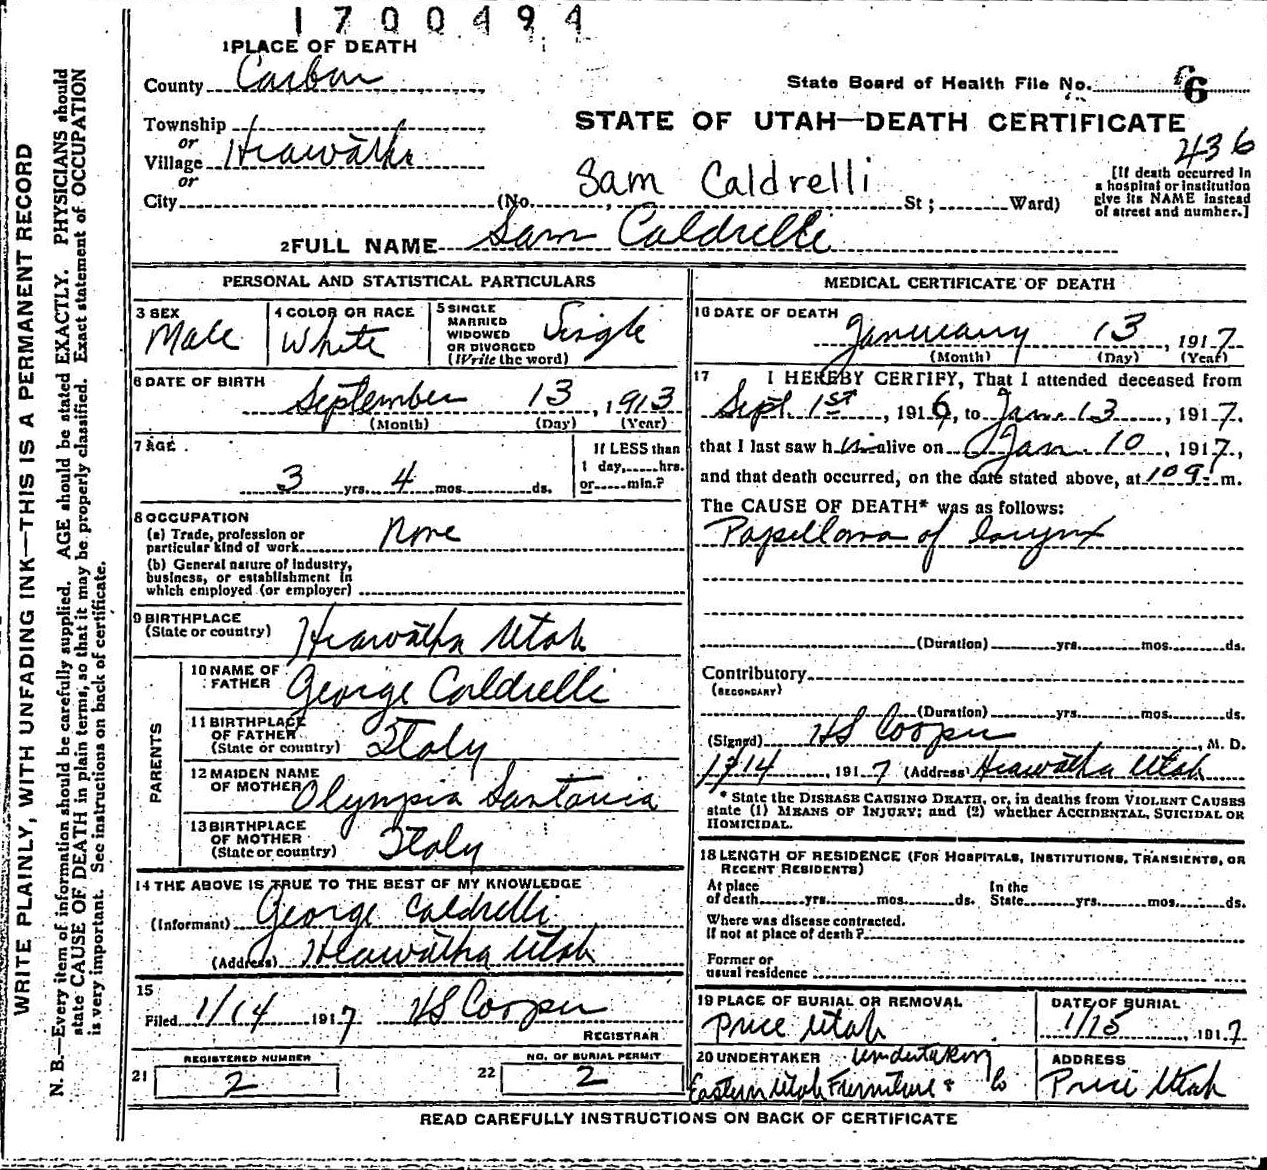 1700494
1 PLACE OF DEATH
County Carbon
State Board of Health File No. 6 6
Township
or
Village Hiawatha
or
City
STATE OF UTAH—DEATH CERTIFICATE
436
[If death occurred in
a hospital or institution
give its NAME instead
of street and number.]
Sam Caldrelli
(No. St; Ward)
2 FULL NAME Sam Caldrelli
PERSONAL AND STATISTICAL PARTICULARS
3 SEX
Male
4 COLOR OR RACE
White
5 SINGLE
MARRIED
WIDOWED
OR DIVORCED
(Write the word)
Single
6 DATE OF BIRTH
September 13, 1913
(Month) (Day) (Year)
7 AGE
3 yrs. 4 mos. ds.
If LESS than
1 day, hrs.
or min.?
8 OCCUPATION
(a) Trade, profession or
particular kind of work None
(b) General nature of industry,
business, or establishment in
which employed (or employer)
9 BIRTHPLACE
(State or country) Hiawatha Utah
PARENTS
10 NAME OF
FATHER George Caldrelli
11 BIRTHPLACE
OF FATHER
(State or country) Italy
12 MAIDEN NAME
OF MOTHER Olympia
13 BIRTHPLACE
OF MOTHER
(State or country) Italy
14 THE ABOVE IS TRUE TO THE BEST OF MY KNOWLEDGE
(Informant) George Caldrelli
(Address) Hiawatha Utah
15
Filed 1/14 1917 HS Cooper
REGISTRAR
REGISTERED NUMBER
21 2
NO. OF BURIAL PERMIT
22 2
MEDICAL CERTIFICATE OF DEATH
16 DATE OF DEATH
January 13, 1917
(Month) (Day) (Year)
17 I HEREBY CERTIFY, That I attended deceased from
Sept. 1st, 1916, to Jan. 13, 1917.
that I last saw him alive on Jan. 10, 1917,
and that death occurred, on the date stated above, at m.
The CAUSE OF DEATH* was as follows:
Papilloma of larynx
(Duration) yrs. mos. ds.
Contributory
(SECONDARY)
(Duration) yrs. mos. ds.
(Signed) HS Cooper, M. D.
1/14, 1917 (Address) Hiawatha Utah
* State the DISEASE CAUSING DEATH, or, in deaths from VIOLENT CAUSES
state (1) MEANS OF INJURY; and (2) whether ACCIDENTAL, SUICIDAL OR
HOMICIDAL.
18 LENGTH OF RESIDENCE (FOR HOSPITALS, INSTITUTIONS, TRANSIENTS, OR
RECENT RESIDENTS)
At place
of death yrs. mos. ds.
In the
State yrs. mos. ds.
Where was disease contracted.
If not at place of death?
Former or
usual residence
19 PLACE OF BURIAL OR REMOVAL
Price Utah
DATE OF BURIAL
1/15, 1917
20 UNDERTAKER Undertaking
Eastern Utah Furniture & Co
ADDRESS
Price Utah
READ CAREFULLY INSTRUCTIONS ON BACK OF CERTIFICATE
WRITE PLAINLY, WITH UNFADING INK—THIS IS A PERMANENT RECORD
N. B.—Every item of information should be carefully supplied. AGE should be stated EXACTLY. PHYSICIANS should
state CAUSE OF DEATH in plain terms, so that it may be properly classified. Exact statement of OCCUPATION
is very important. See instructions on back of certificate.